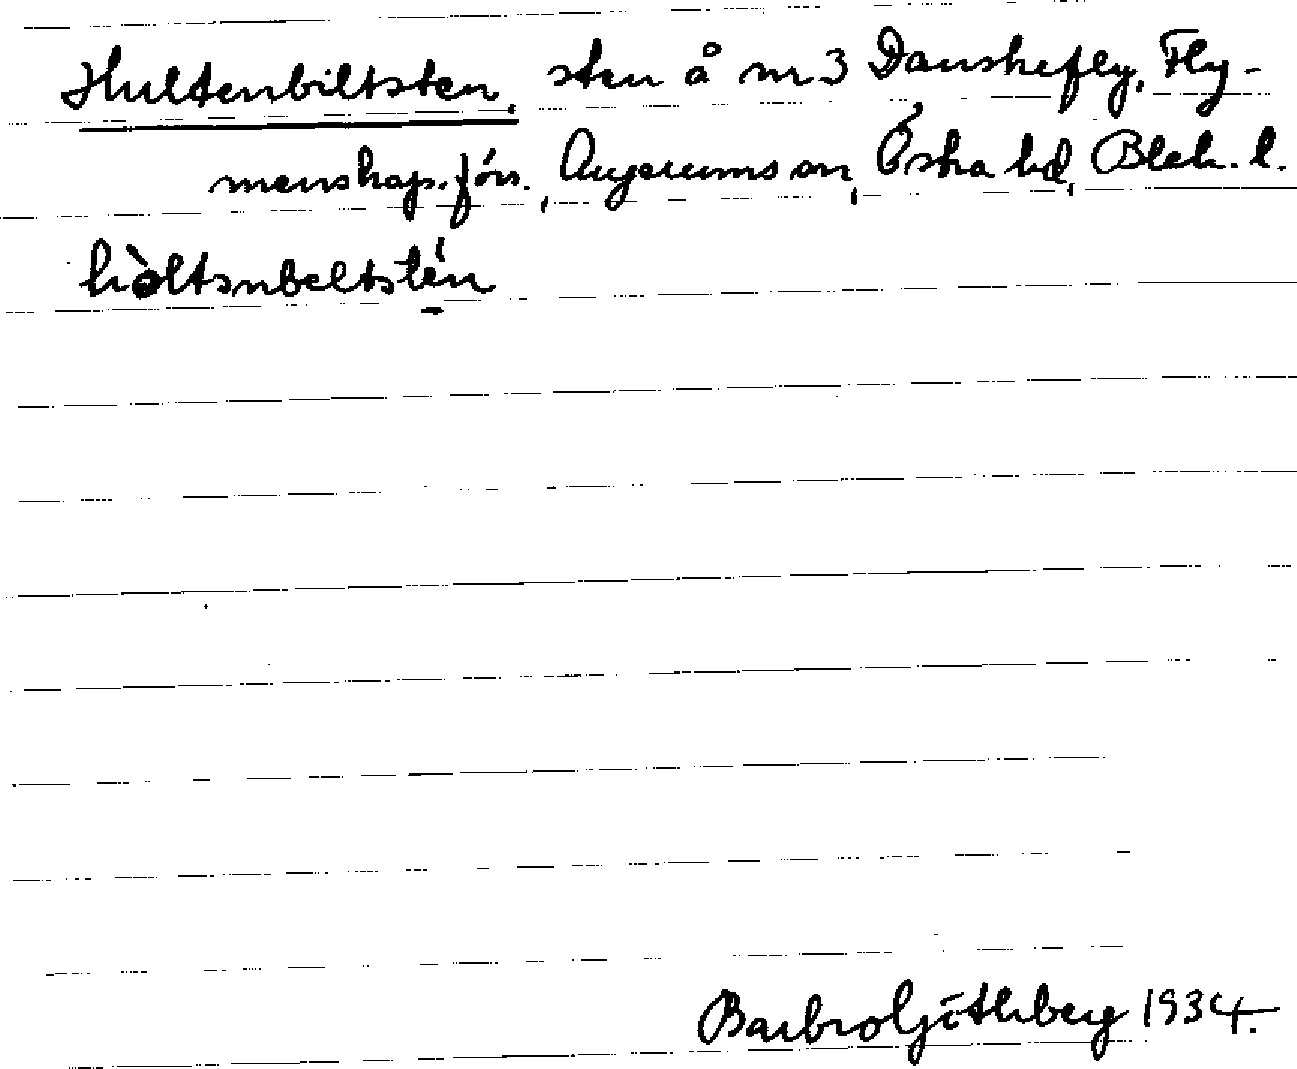 Hultenbiltsten, sten å nr 3 Danskefly, Fly-
menskap. förs., Augerums sn, Östra hd, Blek. l.
hòltsnbeltstén
Barbro 1934.